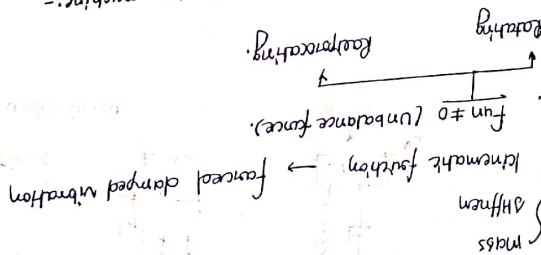 mass
stiffness
kinematic friction → forced damped vibration
Fun ≠ 0 (unbalance force).
Rotating
Reciprocating.